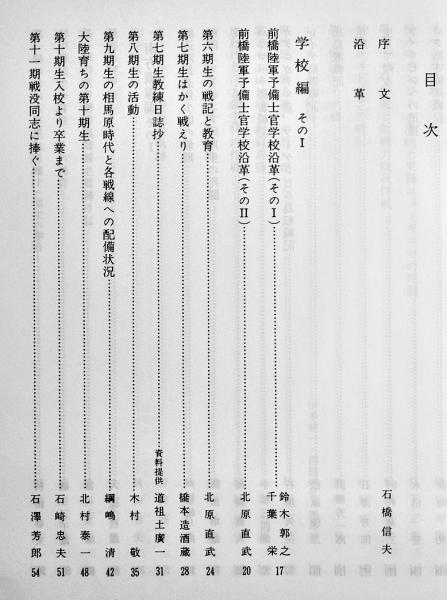 目次
序文 石橋信夫
沿革
学校編 その I
前橋陸軍予備士官学校沿革(その I) 鈴木郭之 千葉栄 17
前橋陸軍予備士官学校沿革(その II) 北原直武 20
第六期生の戦記と教育 北原直武 24
第七期生はかく戦えり 橋本造酒蔵 28
第七期生教練日誌抄 資料提供 道祖土廣一 31
第八期生の活動 木村敬 35
第九期生の相馬原時代と各戦線への配備状況 綱嶋清 42
大陸育ちの第十期生 北村泰一 48
第十期生入校より卒業まで 石崎忠夫 51
第十一期戦没同志に捧ぐ 石澤芳郎 54